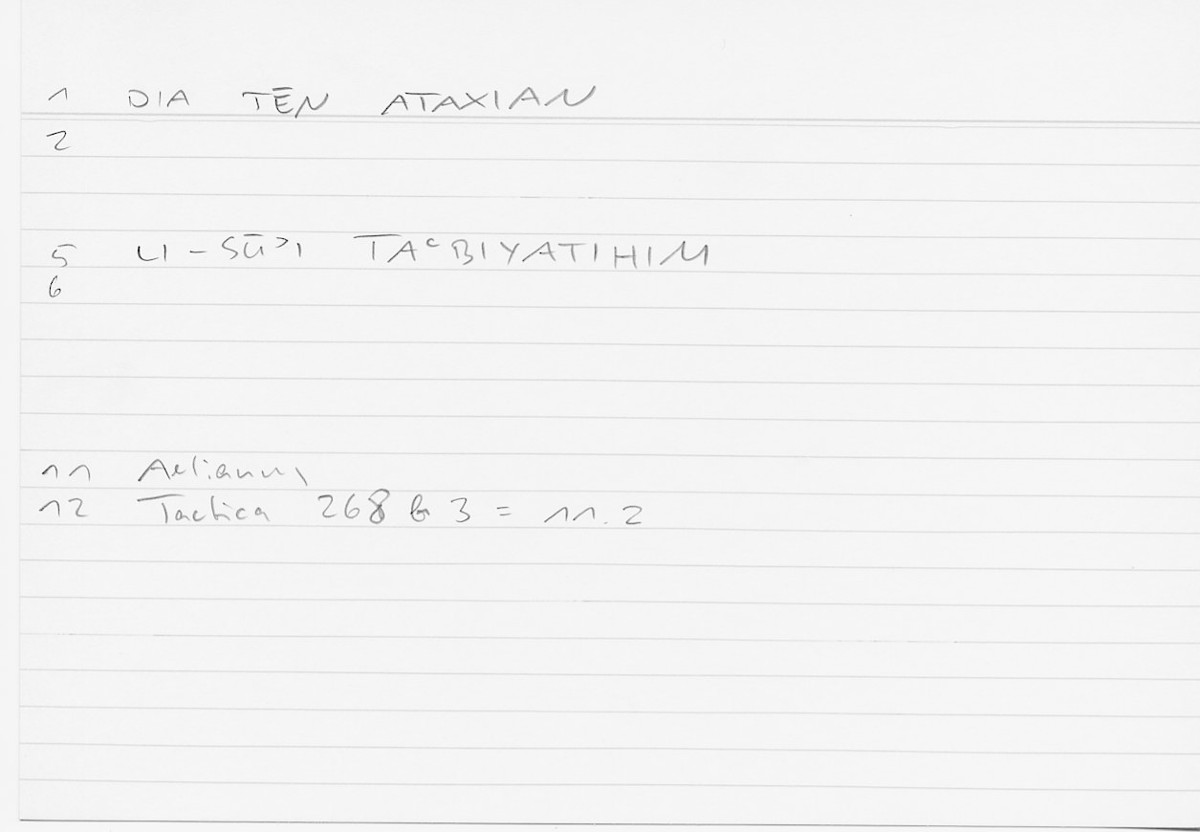 1 DIA TĒN ATAXIAN
2
5 LI-SŪʾI TAʿBIYATIHIM
6
11 Aelianus
12 Tactica 268 b 3 = 11.2